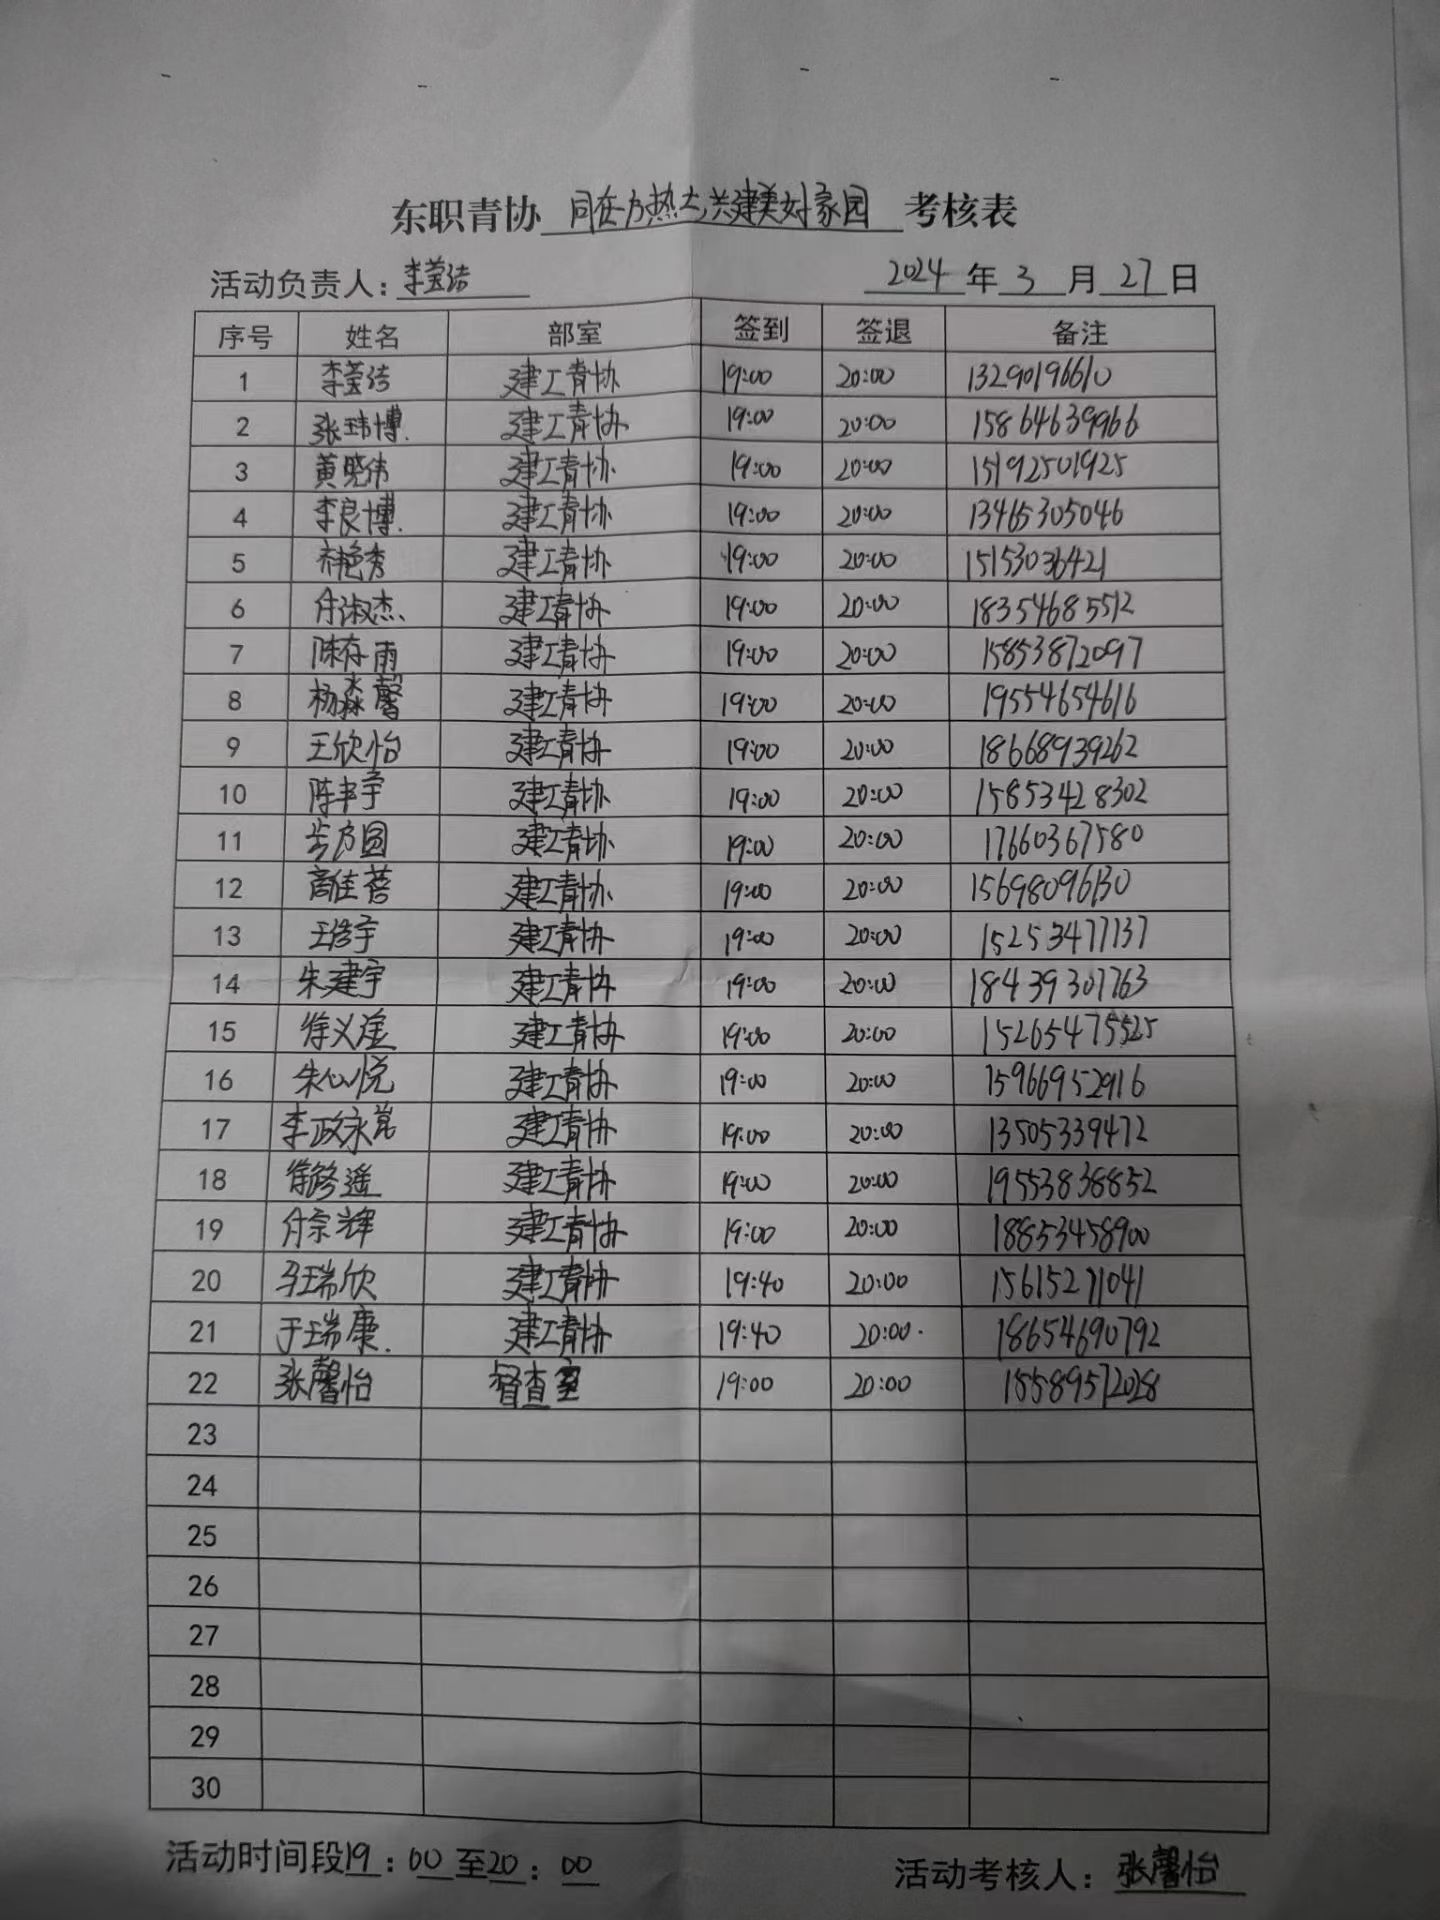 东职青协 同在方热土,共建美好家园 考核表
活动负责人:李莹洁 2024年3月27日
序号 姓名 部室 签到 签退 备注
1 李莹洁 建工青协 19:00 20:00 13290196610
2 张玮博 建工青协 19:00 20:00 15864639966
3 黄晓伟 建工青协 19:00 20:00 15192501925
4 李良博 建工青协 19:00 20:00 13465305046
5 建工青协 19:00 20:00 15153036421
6 付淑杰 建工青协 19:00 20:00 18354685512
7 陈存雨 建工青协 19:00 20:00 15853872097
8 杨淼馨 建工青协 19:00 20:00 19554654616
9 王欣怡 建工青协 19:00 20:00 18668939262
10 陈丰宇 建工青协 19:00 20:00 15853428302
11 步方圆 建工青协 19:00 20:00 17660367580
12 商佳蓉 建工青协 19:00 20:00 15698096130
13 王修宇 建工青协 19:00 20:00 15253477137
14 朱建宇 建工青协 19:00 20:00 18439301763
15 徐义淦 建工青协 19:00 20:00 15265475525
16 朱心悦 建工青协 19:00 20:00 15966952916
17 建工青协 19:00 20:00 13505339472
18 徐路遥 建工青协 19:00 20:00 19553838852
19 付宗辉 建工青协 19:00 20:00 18853458900
20 马瑞欣 建工青协 19:40 20:00 15615271041
21 于瑞康 建工青协 19:40 20:00 18654690792
22 张馨怡 督查室 19:00 20:00 15589572028
23
24
25
26
27
28
29
30
活动时间段19:00至20:00 活动考核人:张馨怡